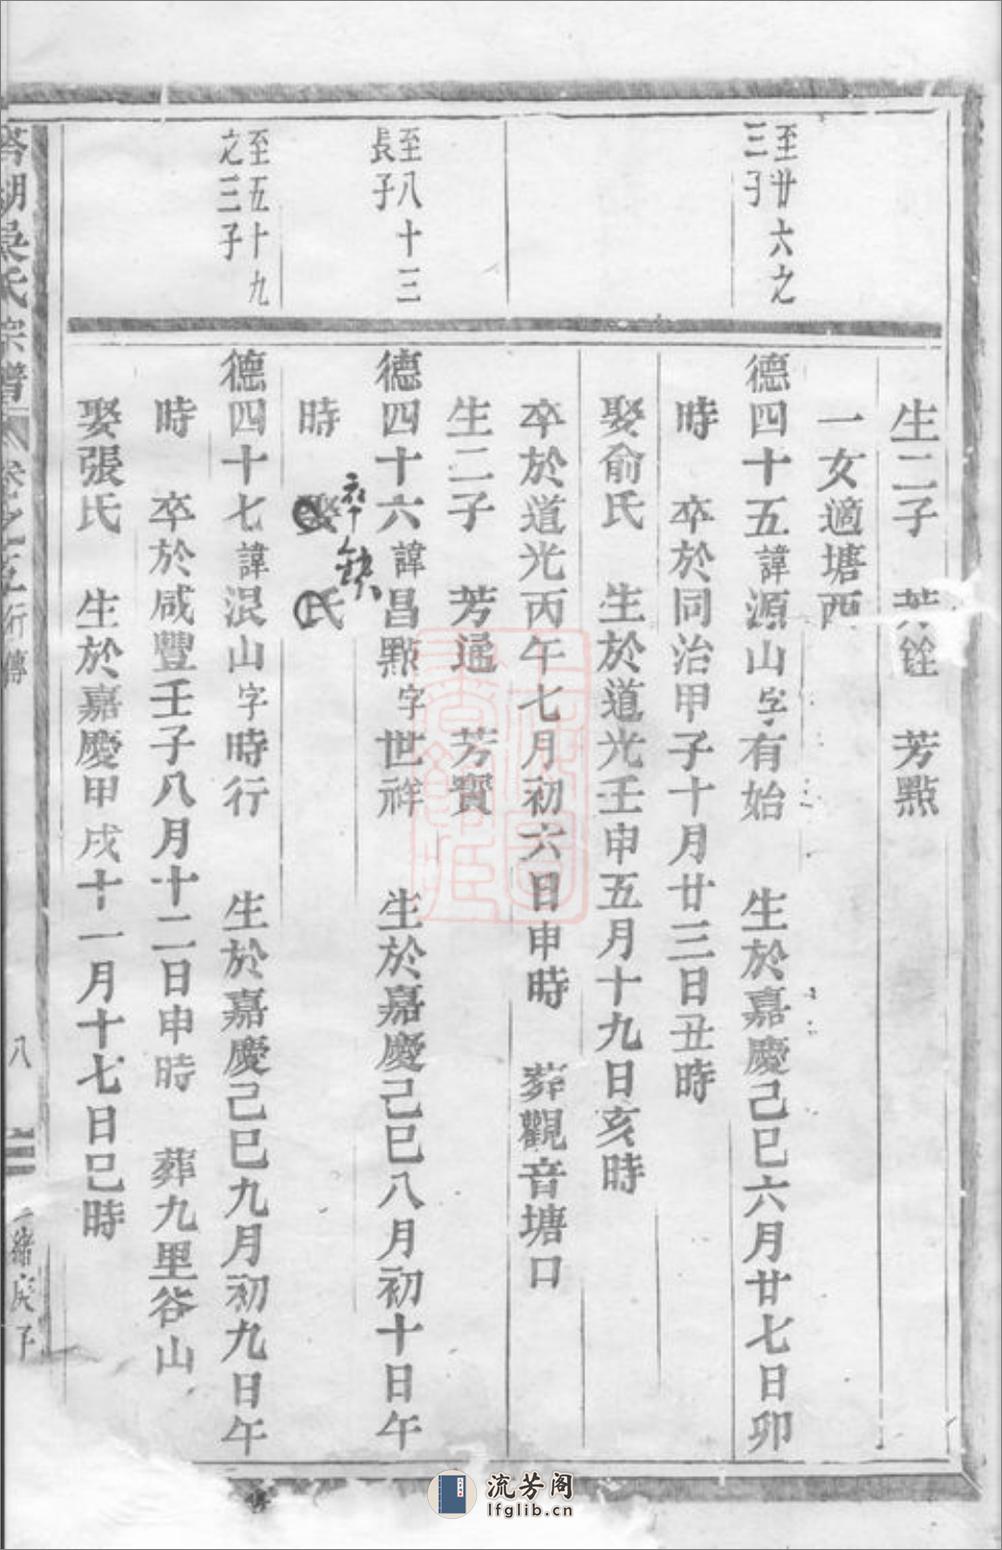 至廿六之
三子
至八十三
長子
至五十九
之三子
生二子 芳銓 芳㸃
一女適塘西
德四十五諱源山字有始 生於嘉慶己巳六月廿七日卯
時 卒於同治甲子十月廿三日丑時
娶俞氏 生於道光壬申五月十九日亥時
卒於道光丙午七月初六日申時 葬觀音塘口
生二子 芳通 芳寳
德四十六諱昌㸃字世祥 生於嘉慶己巳八月初十日午
時 娶 氏
卒缺
德四十七諱泯山字時行 生於嘉慶己巳九月初九日午
時 卒於咸豐壬子八月十二日申時 葬九里谷山
娶張氏 生於嘉慶甲戌十一月十七日巳時
湖吳氏宗譜 卷之五行傳 八
流芳阁
lfglib.cn